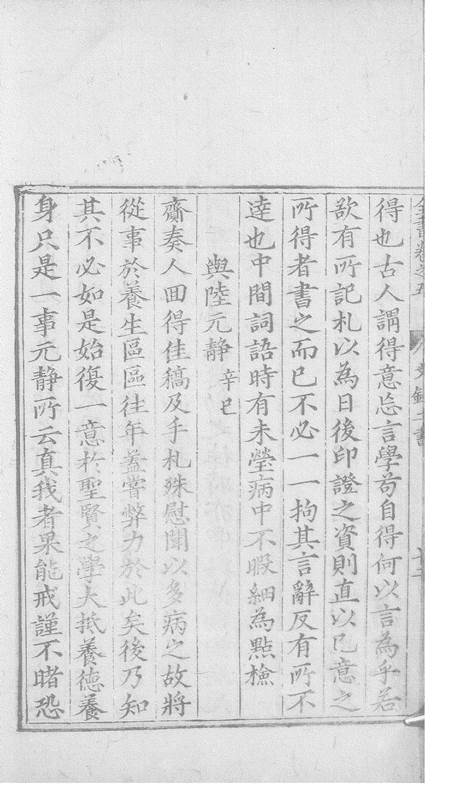 全書卷之五 文錄二書 十二
得也古人謂得意忘言學苟自得何以言為乎若
欲有所記札以為日後印證之資則直以己意之
所得者書之而已不必一一拘其言辭反有所不
達也中間詞語時有未瑩病中不暇細為點檢
與陸元靜 辛巳
齋奏人囬得佳稿及手札殊慰聞以多病之故將
從事於養生區區徃年蓋嘗弊力於此矣後乃知
其不必如是始復一意於聖賢之學大抵養德養
身只是一事元靜所云真我者果能戒謹不睹恐